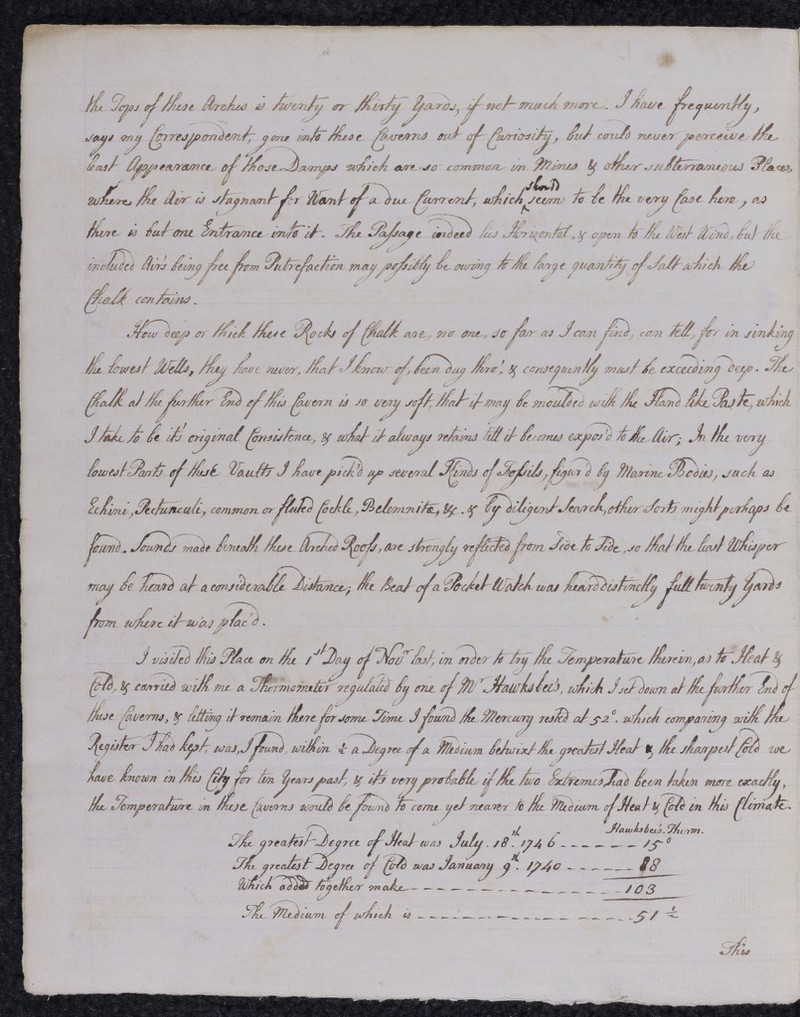 the Tops of these Arches is twenty or thirty Yards, if not much more. I have frequently,
says my Correspondent, gone into these Caverns out of Curiosity, but could never perceive the
least Appearance of those Damps which are so common in Mines & other subterraneous Places,
where the Air is stagnant for Want of a due Current, which should seem to be the very Case here, as
there is but one Entrance into it. The Passage indeed lies Horizontal, & open to the West Wind, but the
included Air's being free from Putrefaction may possibly be owing to the large quantity of Salt which the
Chalk contains.
How deep or thick these Rocks of Chalk are, no one, so far as I can find, can tell, for in sinking
the lowest Wells, they have never, that I know of, been dug thro', & consequently must be exceeding deep. The
Chalk at the further End of this Cavern is so very soft, that it may be moulded with the Hand like Paste, which
I take to be its original Consistence, & what it always retains till it becomes expos'd to the Air; In the very
lowest Parts of these Vaults I have pick'd up several Kinds of Fossils, figur'd by Marine Bodies, such as
Echini, Pectunculi, common or fluted Cockle, Belemnitæ, &c. & by diligent Search, other Sorts might perhaps be
found. Sounds made beneath these Arched Roofs, are strongly reflected from Side to Side, so that the least Whisper
may be heard at a considerable Distance; the Beat of a Pocket Watch was heard distinctly full twenty Yards
from where it was plac'd.
I visited this Place on the 1st Day of Novr last, in order to try the Temperature therein, as to Heat &
Cold, & carried with me a Thermometer regulated by one of Mr Hawksbee's, which I set down at the further End of
these Caverns, & letting it remain there for some Time I found the Mercury rested at 52°. which comparing with the
Register I had kept, was, I found, within ½ a Degree of a Medium betwixt the greatest Heat & the sharpest Cold we
have known in this City for ten Years past, & it's very probable if the two Extremes had been taken more exactly,
the Temperature in these Caverns would be found to come yet nearer to the Medium of Heat & Cold in this Climate.
Hawksbee's. Therm.
The greatest Degree of Heat was July. 18th. 1746 - - - - - - 15°
The greatest Degree of Cold was January 9th. 1740 - - - - - - 88
Which added together make - - - - - - - - - - - - - - 103
The Medium of which is - - - - - - - - - - - - - - 51 ½
This